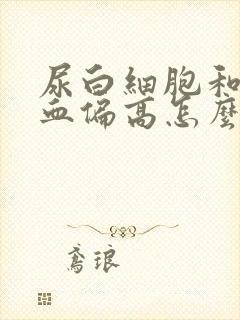 尿白細胞和
血偏高怎麼
鳶琅